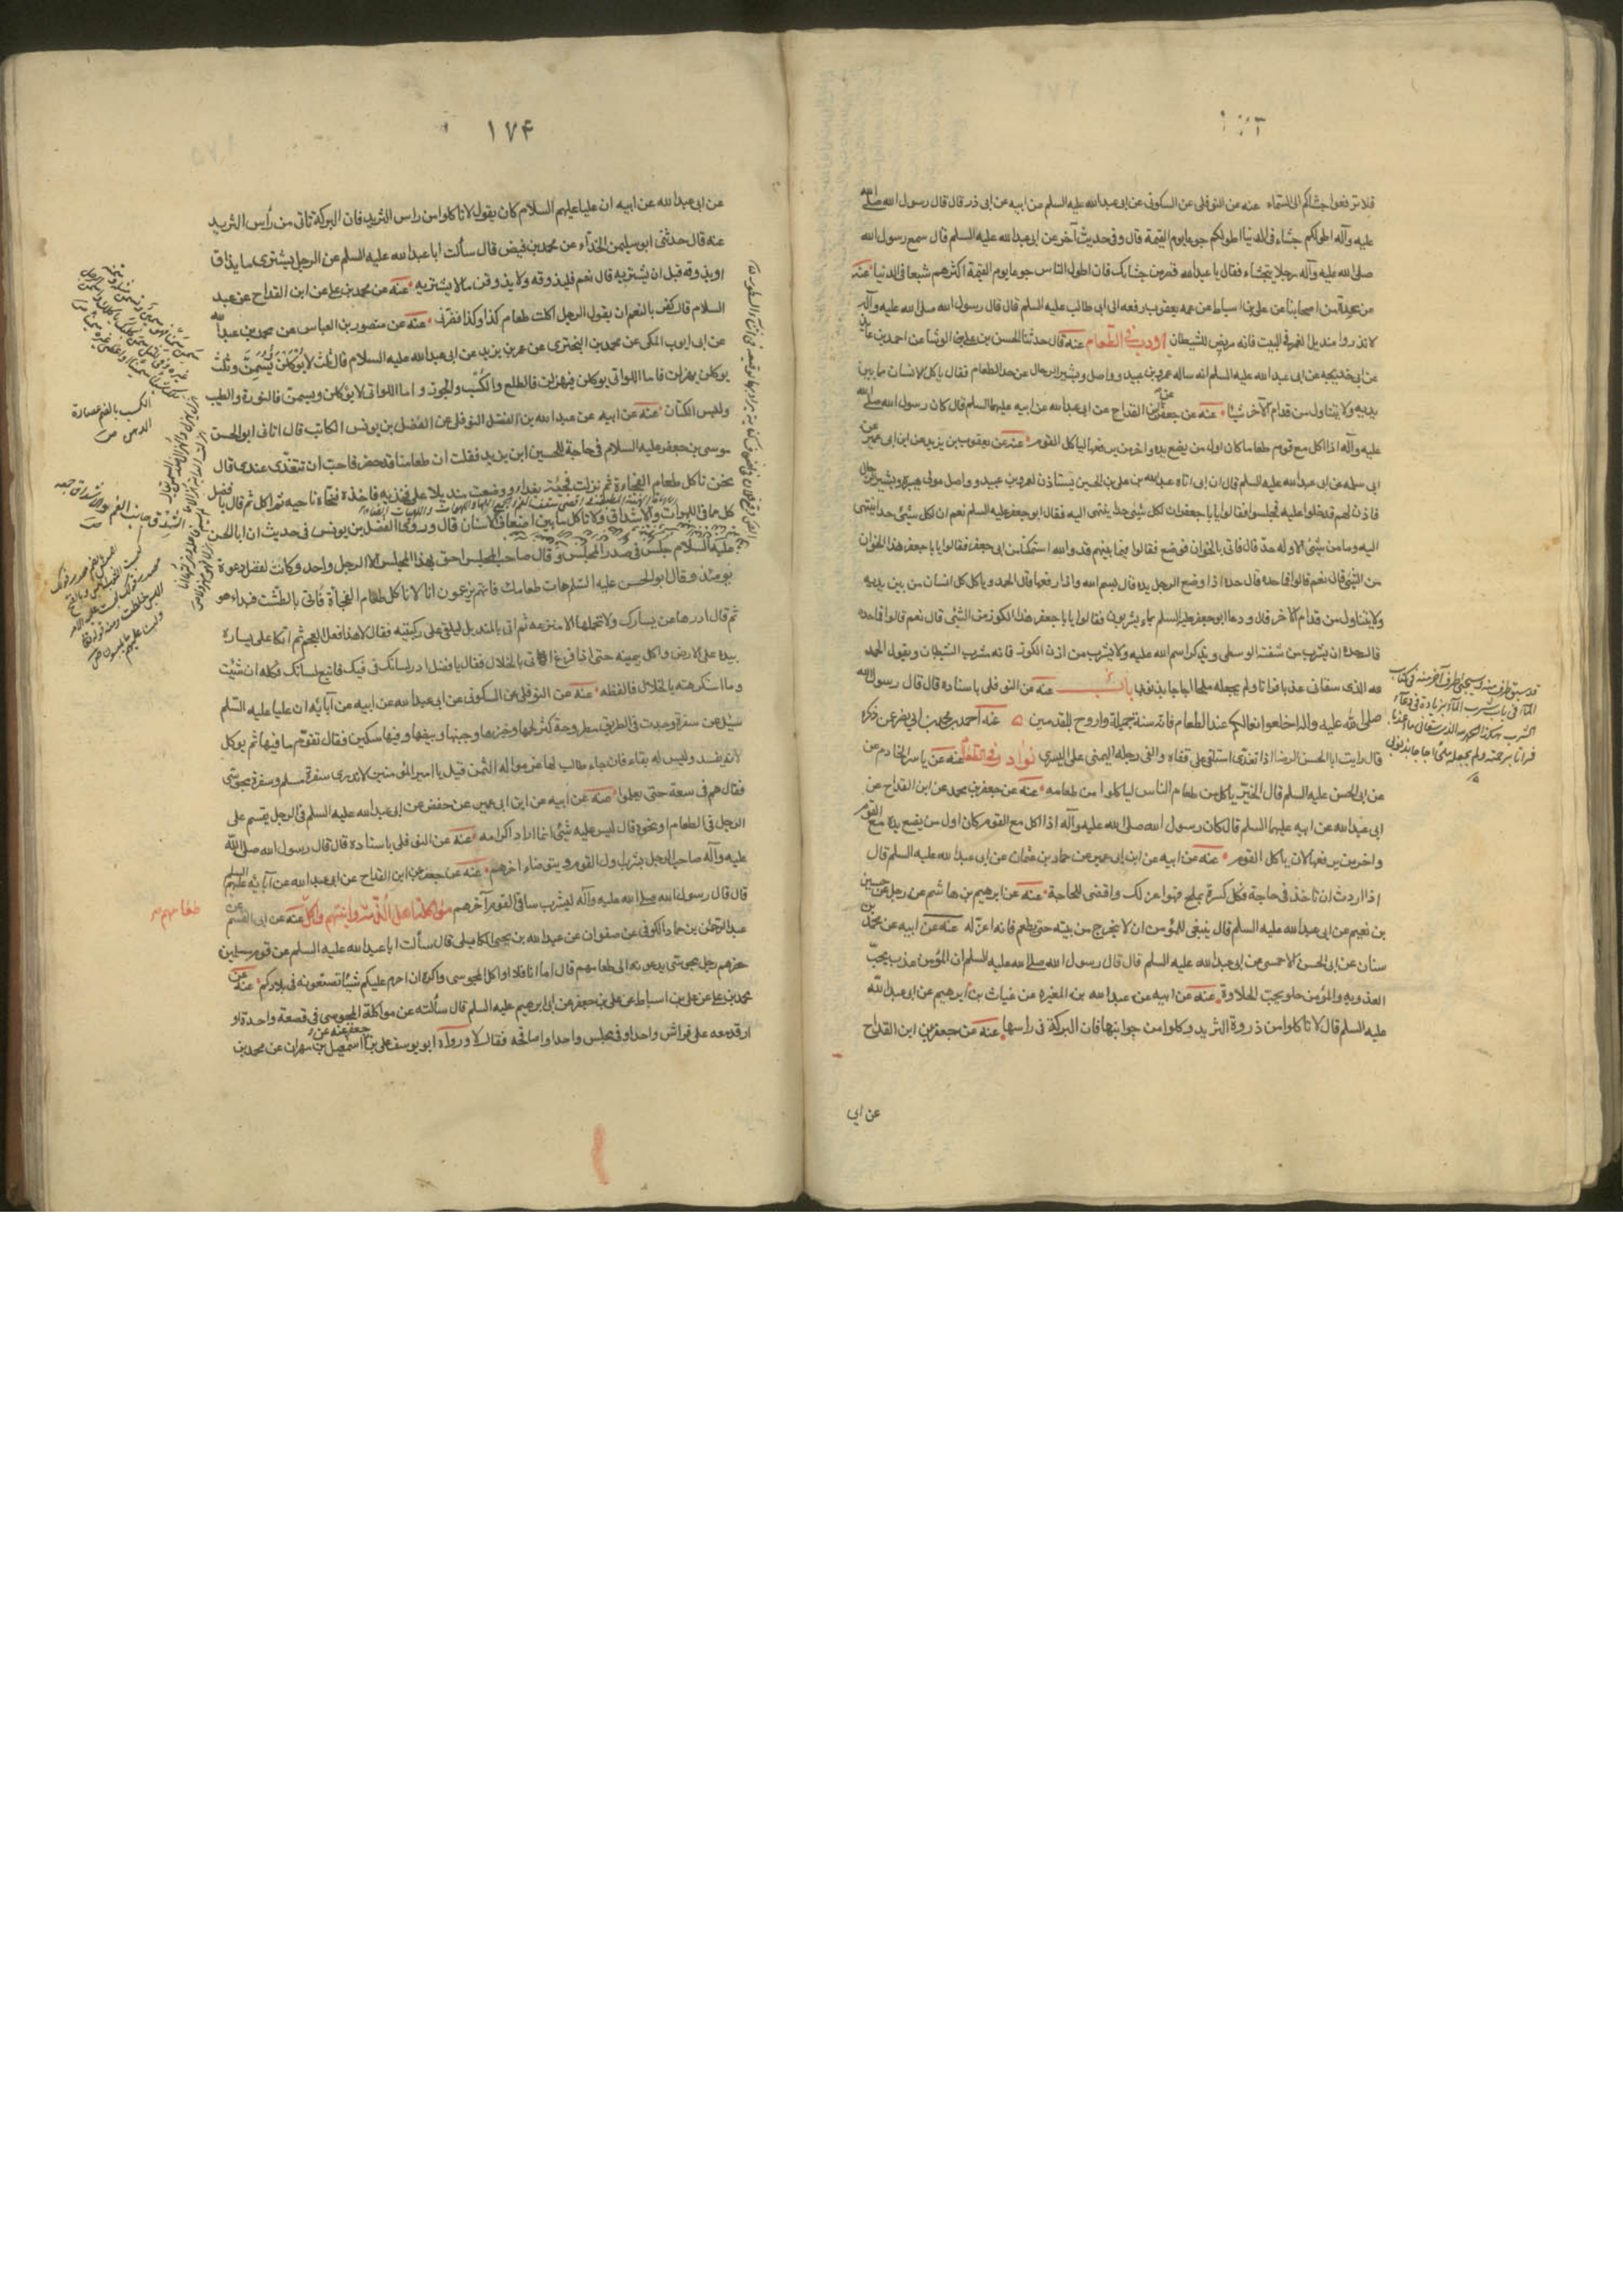 فلا ترفعوا جشاكم الى السماء عنه عن النوفلى عن السكونى عن ابى عبدالله عليه السلم عن ابيه عن ابى ذر قال قال رسول الله صلى الله
عليه وآله اطولكم جشاء فى الدنيا اطولكم جوعا يوم القيمة قال وفى حديث آخر عن ابى عبدالله عليه السلم قال سمع رسول الله
صلى الله عليه وآله رجلا يتجشاء فقال يا عبدالله قصر من جشاك فان اطول الناس جوعا يوم القيمة اكثرهم شبعا فى الدنيا عنه
عن عدة من اصحابنا عن على بن اسباط عن عمه يعقوب رفعه الى على بن ابى طالب عليه السلم قال قال رسول الله صلى الله عليه وآله
لا تذروا منديل الغمر فى البيت فانه مربض للشيطان ادب فى الطعام عنه قال حدثنا الحسن بن على بن الوشا عن احمد بن عائذ
عن ابى خديجه عن ابى عبدالله عليه السلم انه ساله عمرو بن عبيد وواصل وبشير الرحال عن حد الطعام فقال ياكل الانسان ما بين
يديه ولا يتناول من قدام الآخر شيئا عنه عن جعفر عن ابن القداح عن ابى عبدالله عن ابيه عليهما السلم قال كان رسول الله صلى الله
عليه وآله اذا اكل مع قوم طعاما كان اول من يضع يده وآخر من يرفعها لياكل القوم عنه عن يعقوب بن يزيد عن ابن ابى عمير عن
ابى سلمه عن ابى عبدالله عليه السلم قال ان ابى اتاه عبدالله بن على بن الحسين يستاذن لعمرو بن عبيد وواصل مولى هبيرة وبشير الرحال
فاذن لهم فدخلوا عليه فجلسوا فقالوا يا با جعفر ان لكل شىء حدا ينتهى اليه فقال ابو جعفر عليه السلم نعم ان لكل شىء حدا ينتهى
اليه وما من شىء الا وله حد قال فاتى بالخوان فوضع فقالوا فيما بينهم قد والله استمكنا من ابى جعفر فقالوا يا با جعفر هذا الخوان
من الشىء قال نعم قالوا فما حده قال حده اذا وضع الرجل يده قال بسم الله واذا رفعها قال الحمد وياكل كل انسان من بين يديه
ولا يتناول من قدام الآخر قال ودعا ابو جعفر عليه السلم بماء يشربون فقالوا يا با جعفر هذا الكوز من الشىء قال نعم قالوا فما حده
قال حده ان يشرب من شفته الوسطى ويذكر اسم الله عليه ولا يشرب من اذن الكوز فانه شرب الشيطان ويقول الحمد
لله الذى سقانى عذبا فراتا ولم يجعله ملحا اجاجا بذنوبى باب عنه عن النوفلى باسناده قال قال رسول الله
صلى الله عليه وآله اخلعوا نعالكم عند الطعام فانه سنة جميلة واروح للقدمين عنه احمد بن محمد بن ابى نصر عن ذكره
قال رايت ابا الحسن الرضا اذا تغذى استلقى على قفاه والقى رجله اليمنى على اليسرى نوادر فى الطعام عنه عن ياسر الخادم عن
عن ابى الحسن عليه السلم قال الخير ياكل من طعام الناس لياكلوا من طعامه عنه عن جعفر بن محمد عن ابن القداح عن
ابى عبدالله عن ابيه عليهما السلم قال كان رسول الله صلى الله عليه وآله اذا اكل مع القوم كان اول من يضع يده مع القوم
وآخر من يرفعها لان ياكل القوم عنه عن ابيه عن ابن ابى عمير عن حماد بن عثمان عن ابى عبدالله عليه السلم قال
اذا اردت ان تاخذ فى حاجة فكل كسرة بملح فهو اعز لك واقضى للحاجة عنه عن ابرهيم بن هاشم عن رجل عن حسين
بن نعيم عن ابى عبدالله عليه السلم قال ينبغى للمؤمن ان لا يخرج من بيته حتى يطعم فانه اعز له عنه عن ابيه عن محمد بن
سنان عن ابى الحسن الاحمسى عن ابى عبدالله عليه السلم قال قال رسول الله صلى الله عليه السلم ان المؤمن عذب يحب
العذوبه والمؤمن حلو يحب الحلاوة عنه عن ابيه عن عبدالله بن المغيره عن غياث بن ابرهيم عن ابى عبدالله
عليه السلم قال لا تاكلوا من ذروة الثريد وكلوا من جوانبها فان البركة فى راسها عنه عن جعفر بن ابن القداح
عن ابى
١٧۴
عن ابى عبدالله عن ابيه ان عليا عليهم السلام كان يقول لا تاكلوا من راس الثريد فان البركة تاتى من رأس الثريد
عنه قال حدثنى ابو سليمن الحذاء عن محمد بن فيض قال سألت ابا عبدالله عليه السلم عن الرجل يشترى ما يذاق
او يذوقه قبل ان يشتريه قال نعم فليذوقه ولا يذوقن ما لا يشتريه عنه عن محمد بن على عن ابن القداح عن عبد
السلام قال كفر بالنعم ان يقول الرجل اكلت طعام كذا وكذا فضرنى عنه عن منصور بن العباس عن محمد بن عبدالله
عن ابى ايوب المكى عن محمد بن البخترى عن عمر بن يزيد عن ابى عبدالله عليه السلام قال ثلث لا يؤكلن يسمن وثلث
يوكلن يهزلن فاما اللواتى يوكلن فيهزلن فالطلع والكسب والجوز واما اللواتى لا يؤكلن ويسمن فالنورة والطيب
ولبس الكتان عنه عن ابيه عن عبدالله بن الفضل النوفلى عن الفضل بن يونس الكاتب قال اتانى ابو الحسن
موسى بن جعفر عليه السلام فى حاجة للحسين ابن يزيد فقلت ان طعامنا قد حضر فاحب ان تتغدى عندى قال
نحن ناكل طعام الفجاءة ثم نزل فجئته بغداء ووضعت منديلا على فخذيه فاخذه فنحاه ناحيه ثم اكل ثم قال يا فضل
كل ما فى اللهوات والاشداق ولا تاكل ما بين اضعاف الاسنان قال وروى الفضل بن يونس فى حديث ان ابا الحسن
عليه السلام جلس فى صدر المجلس وقال صاحب المجلس احق بهذا المجلس الا لرجل واحد وكانت لفضل دعوة
يومئذ وقال ابو الحسن عليه السلم هات طعامك فانهم يزعمون انا لا ناكل طعام الفجأة فاتى بالطشت فبداء هو
ثم قال ادرها عن يسارك ولا تحملها الا مترعه ثم اتى بالمنديل ليلقى على ركبتيه فقال لا هذا فعل العجم ثم اتكا على يساره
بيده على الارض واكل بيمينه حتى اذا فرغ اتى بالخلال فقال يا فضل ادر لسانك فى فيك فما تبع لسانك فكله ان شئت
وما استكرهته بالخلال فالفظه عنه عن النوفلى عن السكونى عن ابى عبدالله عن ابيه عن آبائه ان عليا عليه السلم
سئل عن سفرة وجدت فى الطريق مطروحة كثر لحمها وخبزها وجبنها وبيضها وفيها سكين فقال تقوم ما فيها ثم يوكل
لانه يفسد وليس له بقاء فان جاء طالب لها غرموا له الثمن قيل يا امير المؤمنين لا يدرى سفرة مسلم او سفرة مجوسى
فقال هم فى سعة حتى يعلموا عنه عن ابيه عن ابن ابى عمير عن حفص عن ابى عبدالله عليه السلم فى الرجل يقسم على
الرجل فى الطعام او نحوه قال ليس عليه شىء انما اراد اكرامه عنه عن النوفلى باسناده قال قال رسول الله صلى الله
عليه وآله صاحب الرجل يشرب اول القوم ويتوضاء اخرهم عنه عن جعفر عن ابن القداح عن ابى عبدالله عن آبائه عليهم السلم
قال قال رسول الله صلى الله عليه وآله ليشرب ساقى القوم آخرهم مؤاكلة اهل الذمة وآنيتهم واكل عنه عن ابى القسم عن
طعامهم
عبدالرحمن بن حماد الكوفى عن صفوان عن عبدالله بن يحيى الكاهلى قال سألت ابا عبدالله عليه السلم عن قوم مسلمين
حضرهم رجل مجوسى يدعونه الى طعامهم قال اما انا فلا اواكل المجوسى واكره ان احرم عليكم شيئا تصنعونه فى بلادكم عنه عن
محمد بن على عن على بن اسباط عن على بن جعفر عن ابى ابرهيم عليه السلم قال سألته عن مواكلة المجوسى فى قصعة واحدة او
ارقد معه على فراش واحد او فى مجلس واحد او اصافحه فقال لا ورواه ابو يوسف على بن جعفر عنه عن اسمعيل بن مهران عن محمد بن
الكسب بالضم عصارة
الدهن ص